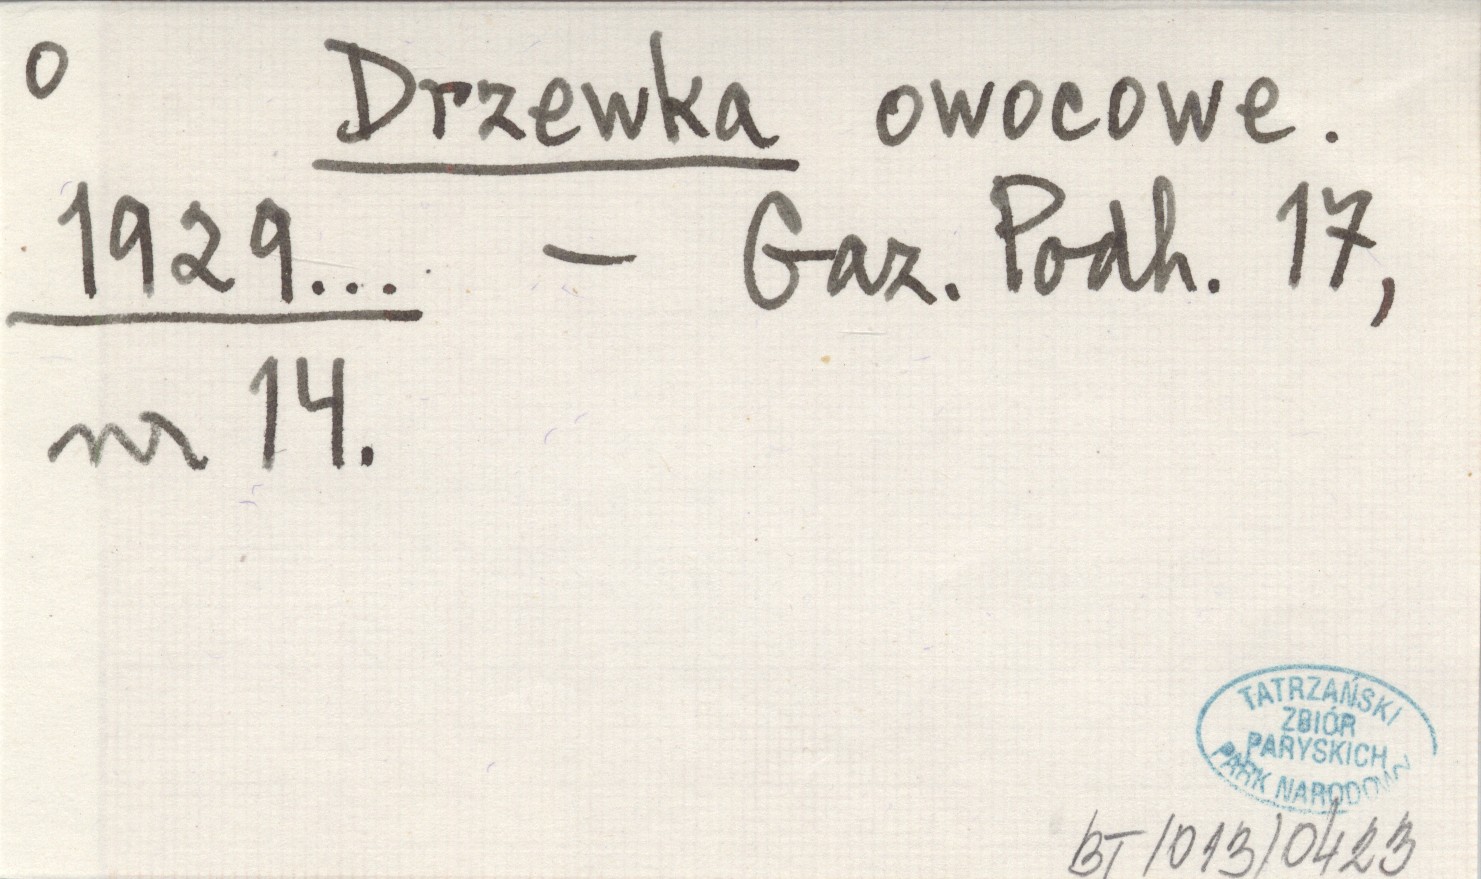 o Drzewka owocowe.
1929... – Gaz. Podh. 17,
nr 14.
TATRZAŃSKI
ZBIÓR
PARYSKICH
PARK NARODOWY
BT/013/0423